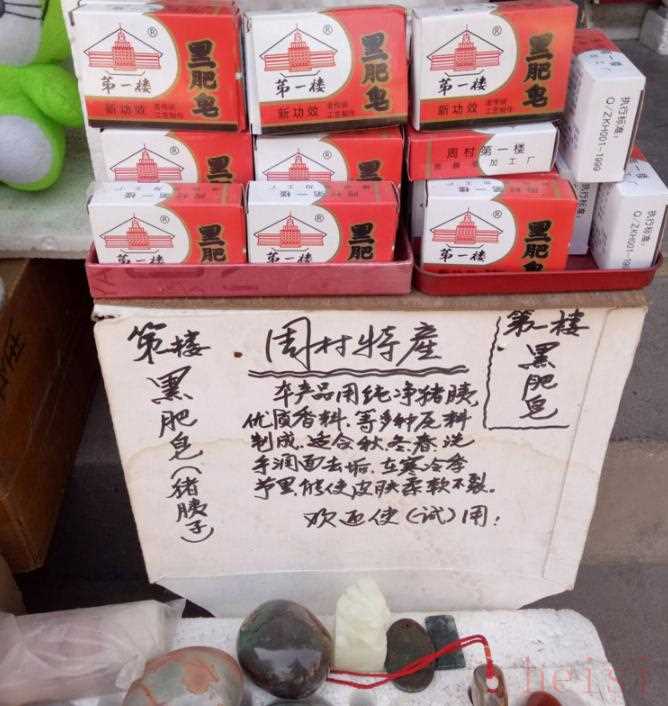 第一楼
®
黑肥皂
新功效
第一楼
®
黑肥皂
新功效
第一楼
®
黑肥皂
新功效
执行标准:
Q/ZKH001-1999
周村第一楼
加工厂
执行标准:
Q/ZKH001-1999
第一楼
®
黑肥皂
第一楼
®
黑肥皂
第一楼
®
黑肥皂
第一楼
黑肥皂(猪胰子)
周村特産
本产品用纯净猪胰
优质香料.等多种原料
制成.适合秋.冬.春.洗
手润面去垢.在寒冷季
节里能使皮肤柔软不裂。
欢迎使(试)用!
第一楼
黑肥皂
heisi